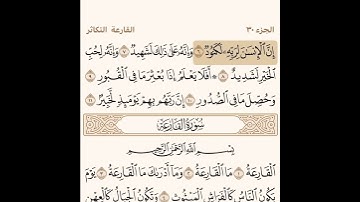 الجزء ٣٠ القارعة التكاثر
إِنَّ الْإِنسَانَ لِرَبِّهِ لَكَنُودٌ ٦ وَإِنَّهُ عَلَىٰ ذَٰلِكَ لَشَهِيدٌ ٧ وَإِنَّهُ لِحُبِّ
الْخَيْرِ لَشَدِيدٌ ٨ ۞ أَفَلَا يَعْلَمُ إِذَا بُعْثِرَ مَا فِي الْقُبُورِ ٩
وَحُصِّلَ مَا فِي الصُّدُورِ ١٠ إِنَّ رَبَّهُم بِهِمْ يَوْمَئِذٍ لَّخَبِيرٌ ١١
سُورَةُ القَارِعَةِ
بِسْمِ اللَّهِ الرَّحْمَٰنِ الرَّحِيمِ
الْقَارِعَةُ ١ مَا الْقَارِعَةُ ٢ وَمَا أَدْرَاكَ مَا الْقَارِعَةُ ٣ يَوْمَ
يَكُونُ النَّاسُ كَالْفَرَاشِ الْمَبْثُوثِ ٤ وَتَكُونُ الْجِبَالُ كَالْعِهْنِ